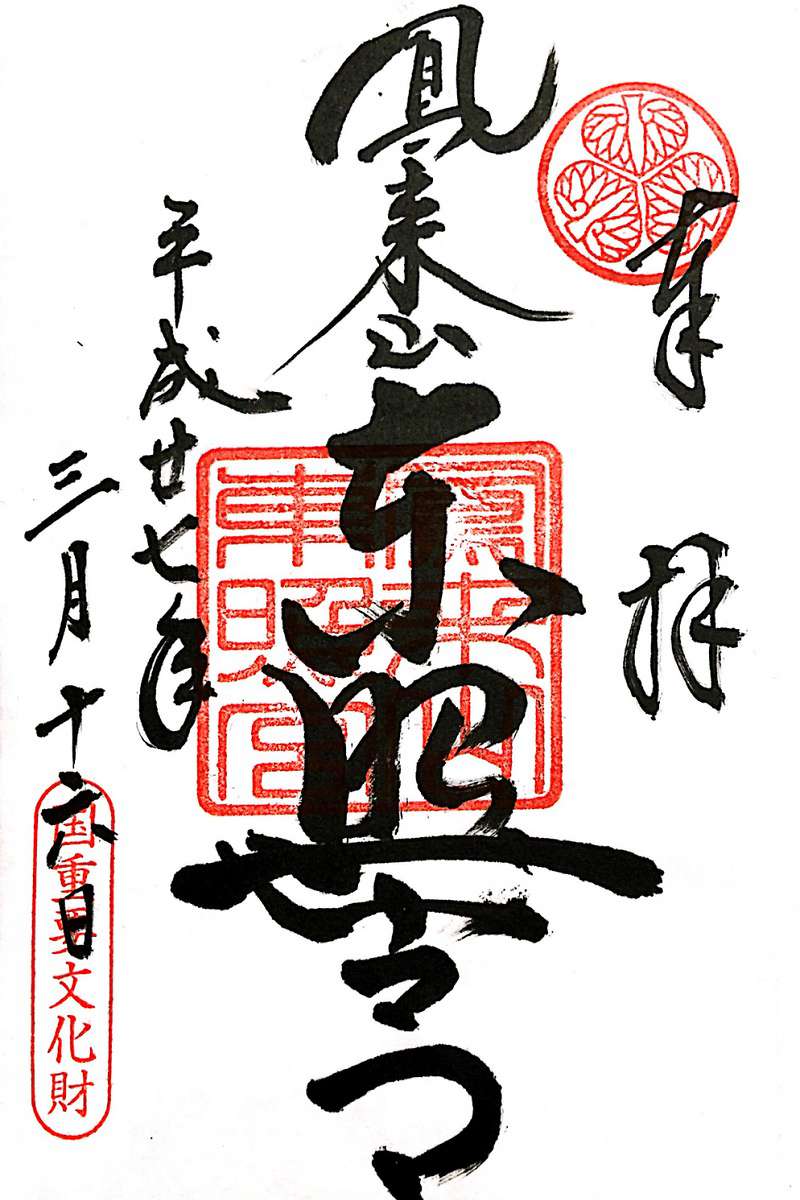 奉拝
鳳来山
東照宮
鳳来山
東照宮
平成廿七年
三月十六日
国重要文化財